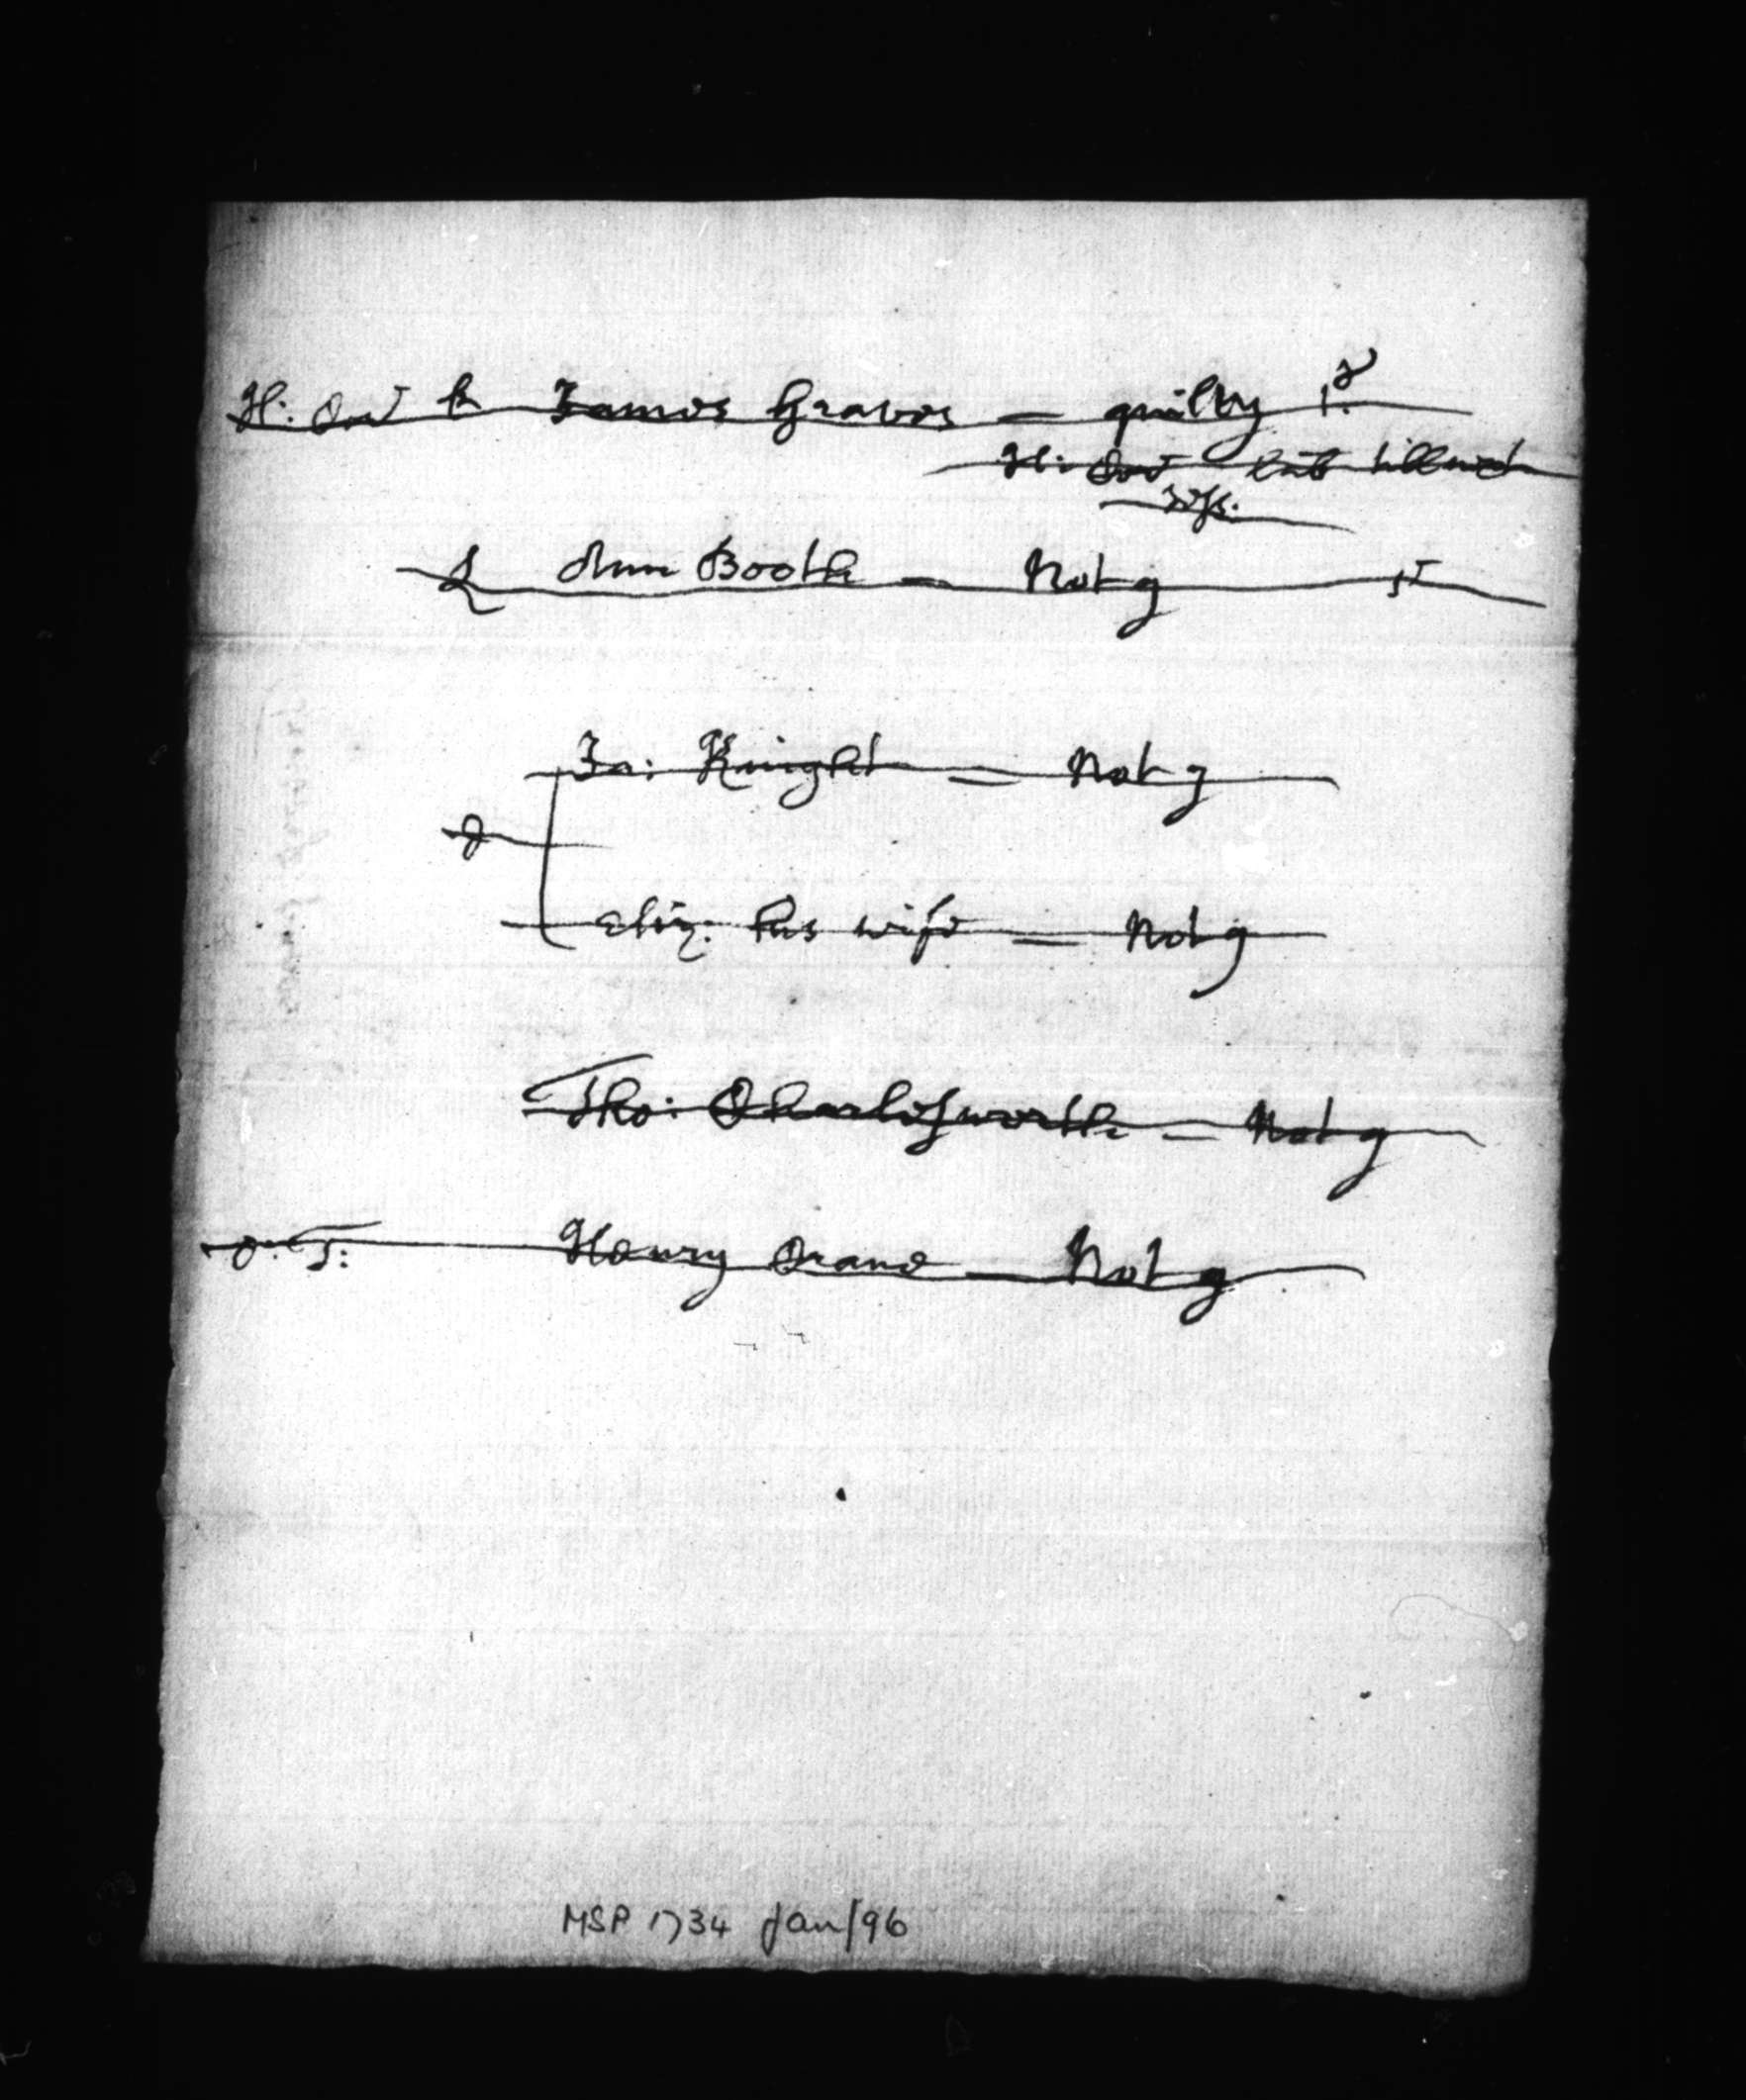 H: Cor James Graves = guilty 1s
H: Cor
Ann Booth – Not g
Ja: Knight = Not g
Eliz: his wife = Not g
Tho: Charlesworth – Not g
O. T: Henry Crane – Not g
MSP 1734 Jan/96